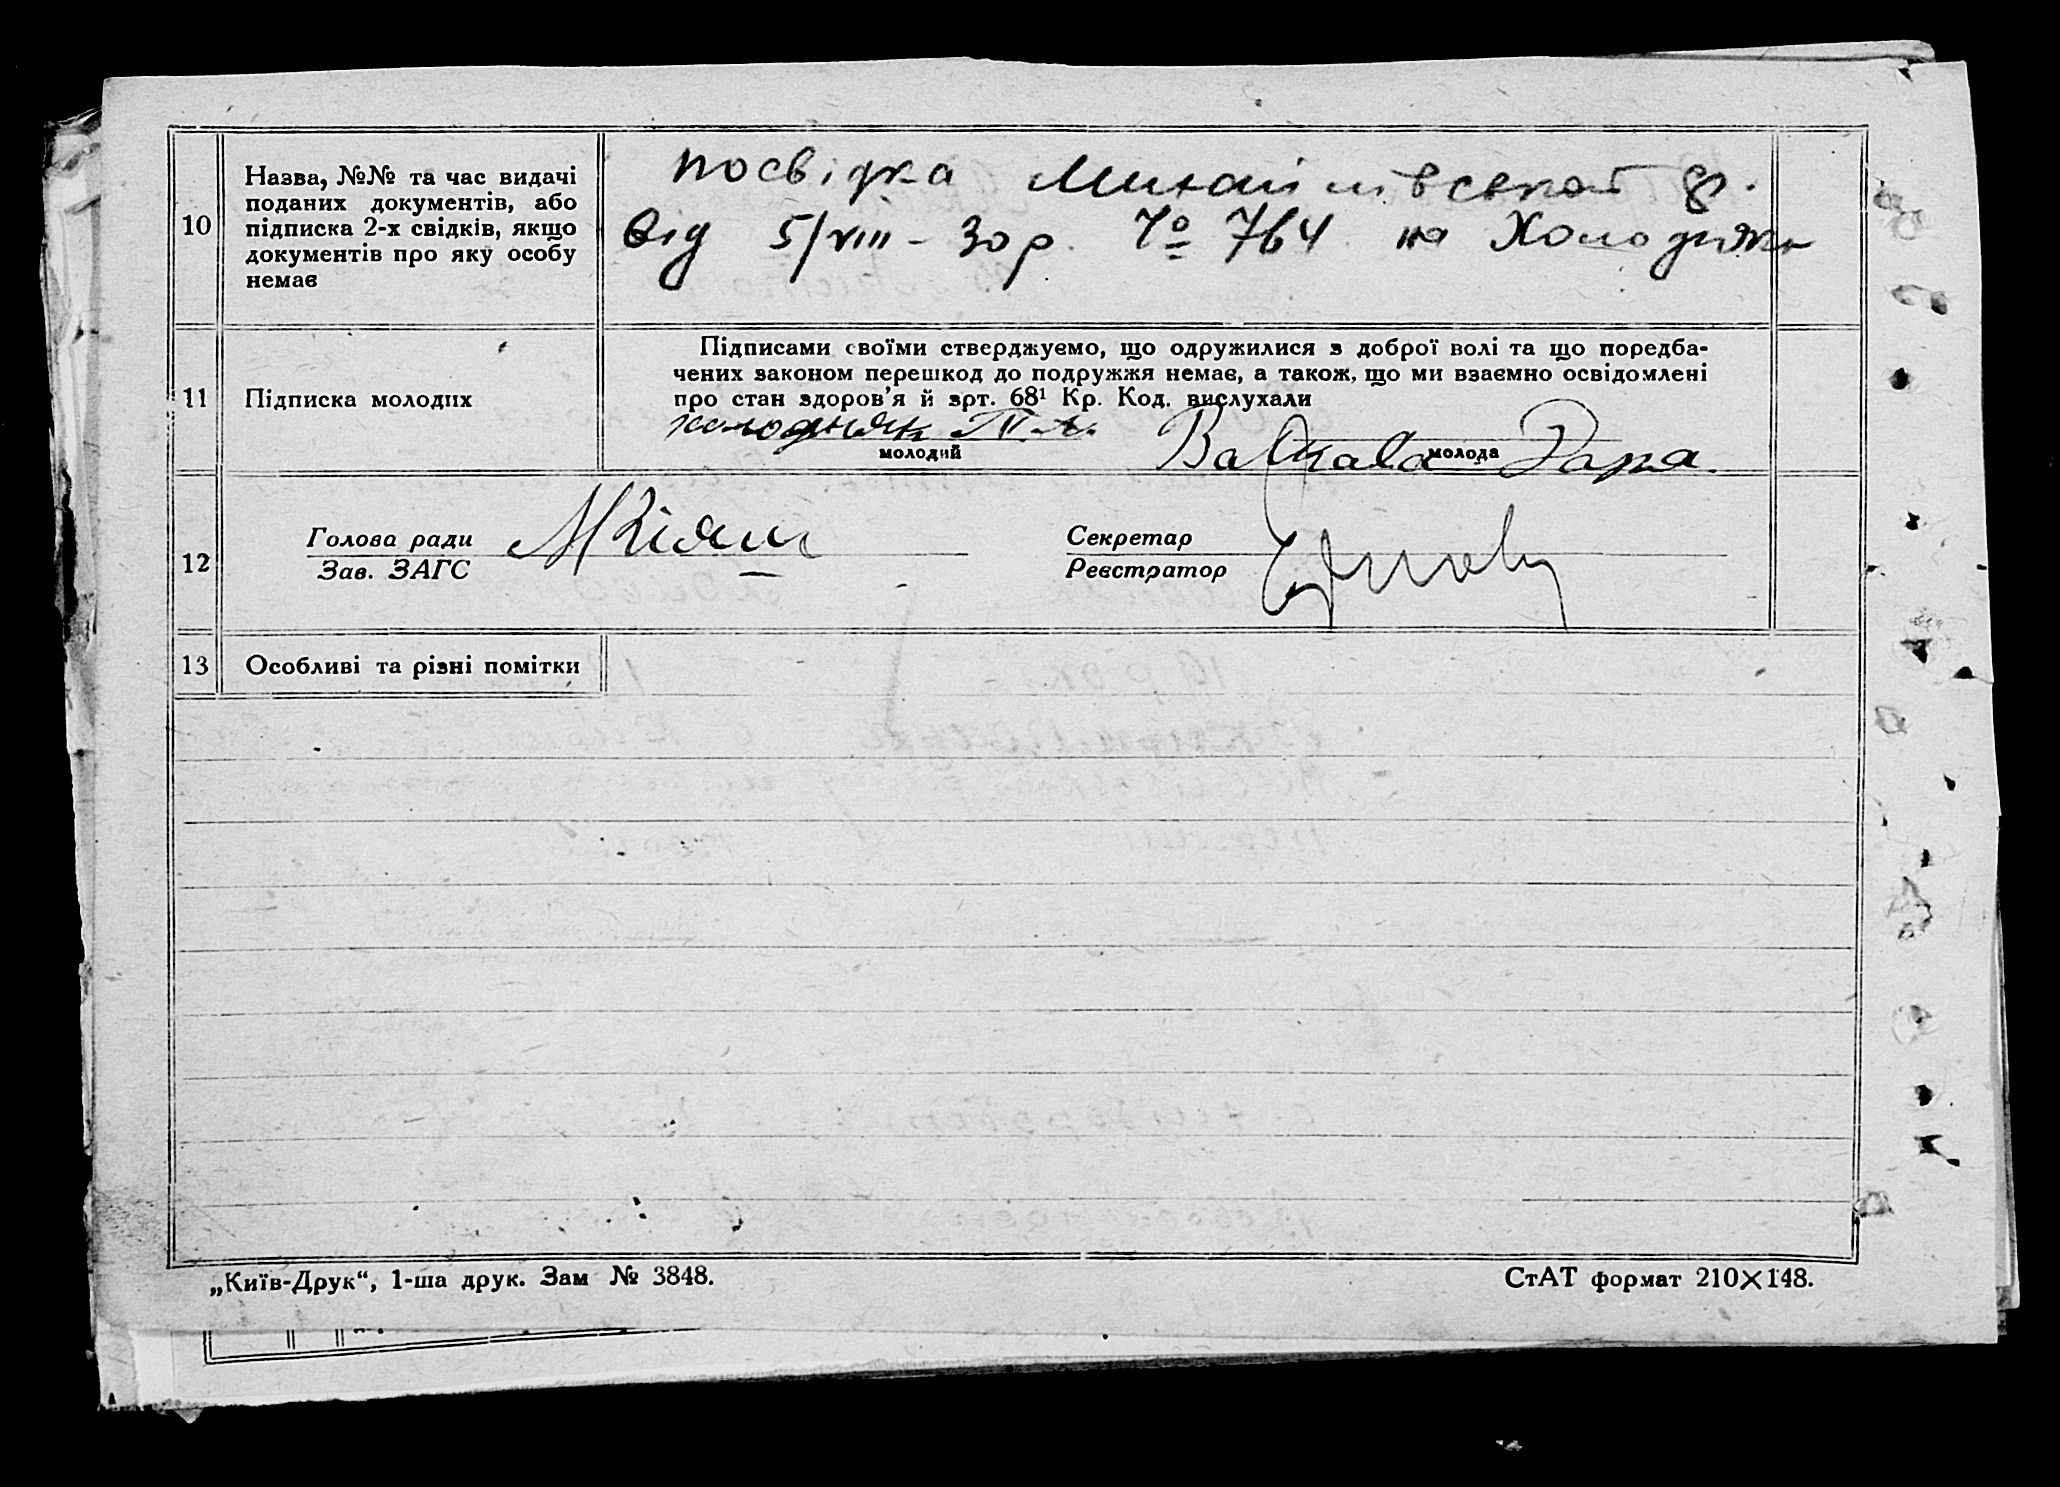 10
Назва, №№ та час видачі
поданих документів, або
підписка 2-х свідків, якщо
документів про яку особу
немає
посвідка Михайлівської
від 5/VIII-30 р. № 764 на Холодняк
11
Підписка молодих
Підписами своїми стверджуємо, що одружилися з доброї волі та що передба-
чених законом перешкод до подружжя немає, а також, що ми взаємно освідомлені
про стан здоров'я й зрт. 68¹ Кр. Код. вислухали
холодняк
молодий
молода
12
Голова ради
Зав. ЗАГС
Секретар
Реєстратор
13
Особливі та різні помітки
„Київ-Друк“, 1-ша друк. Зам № 3848.
СтАТ формат 210×148.